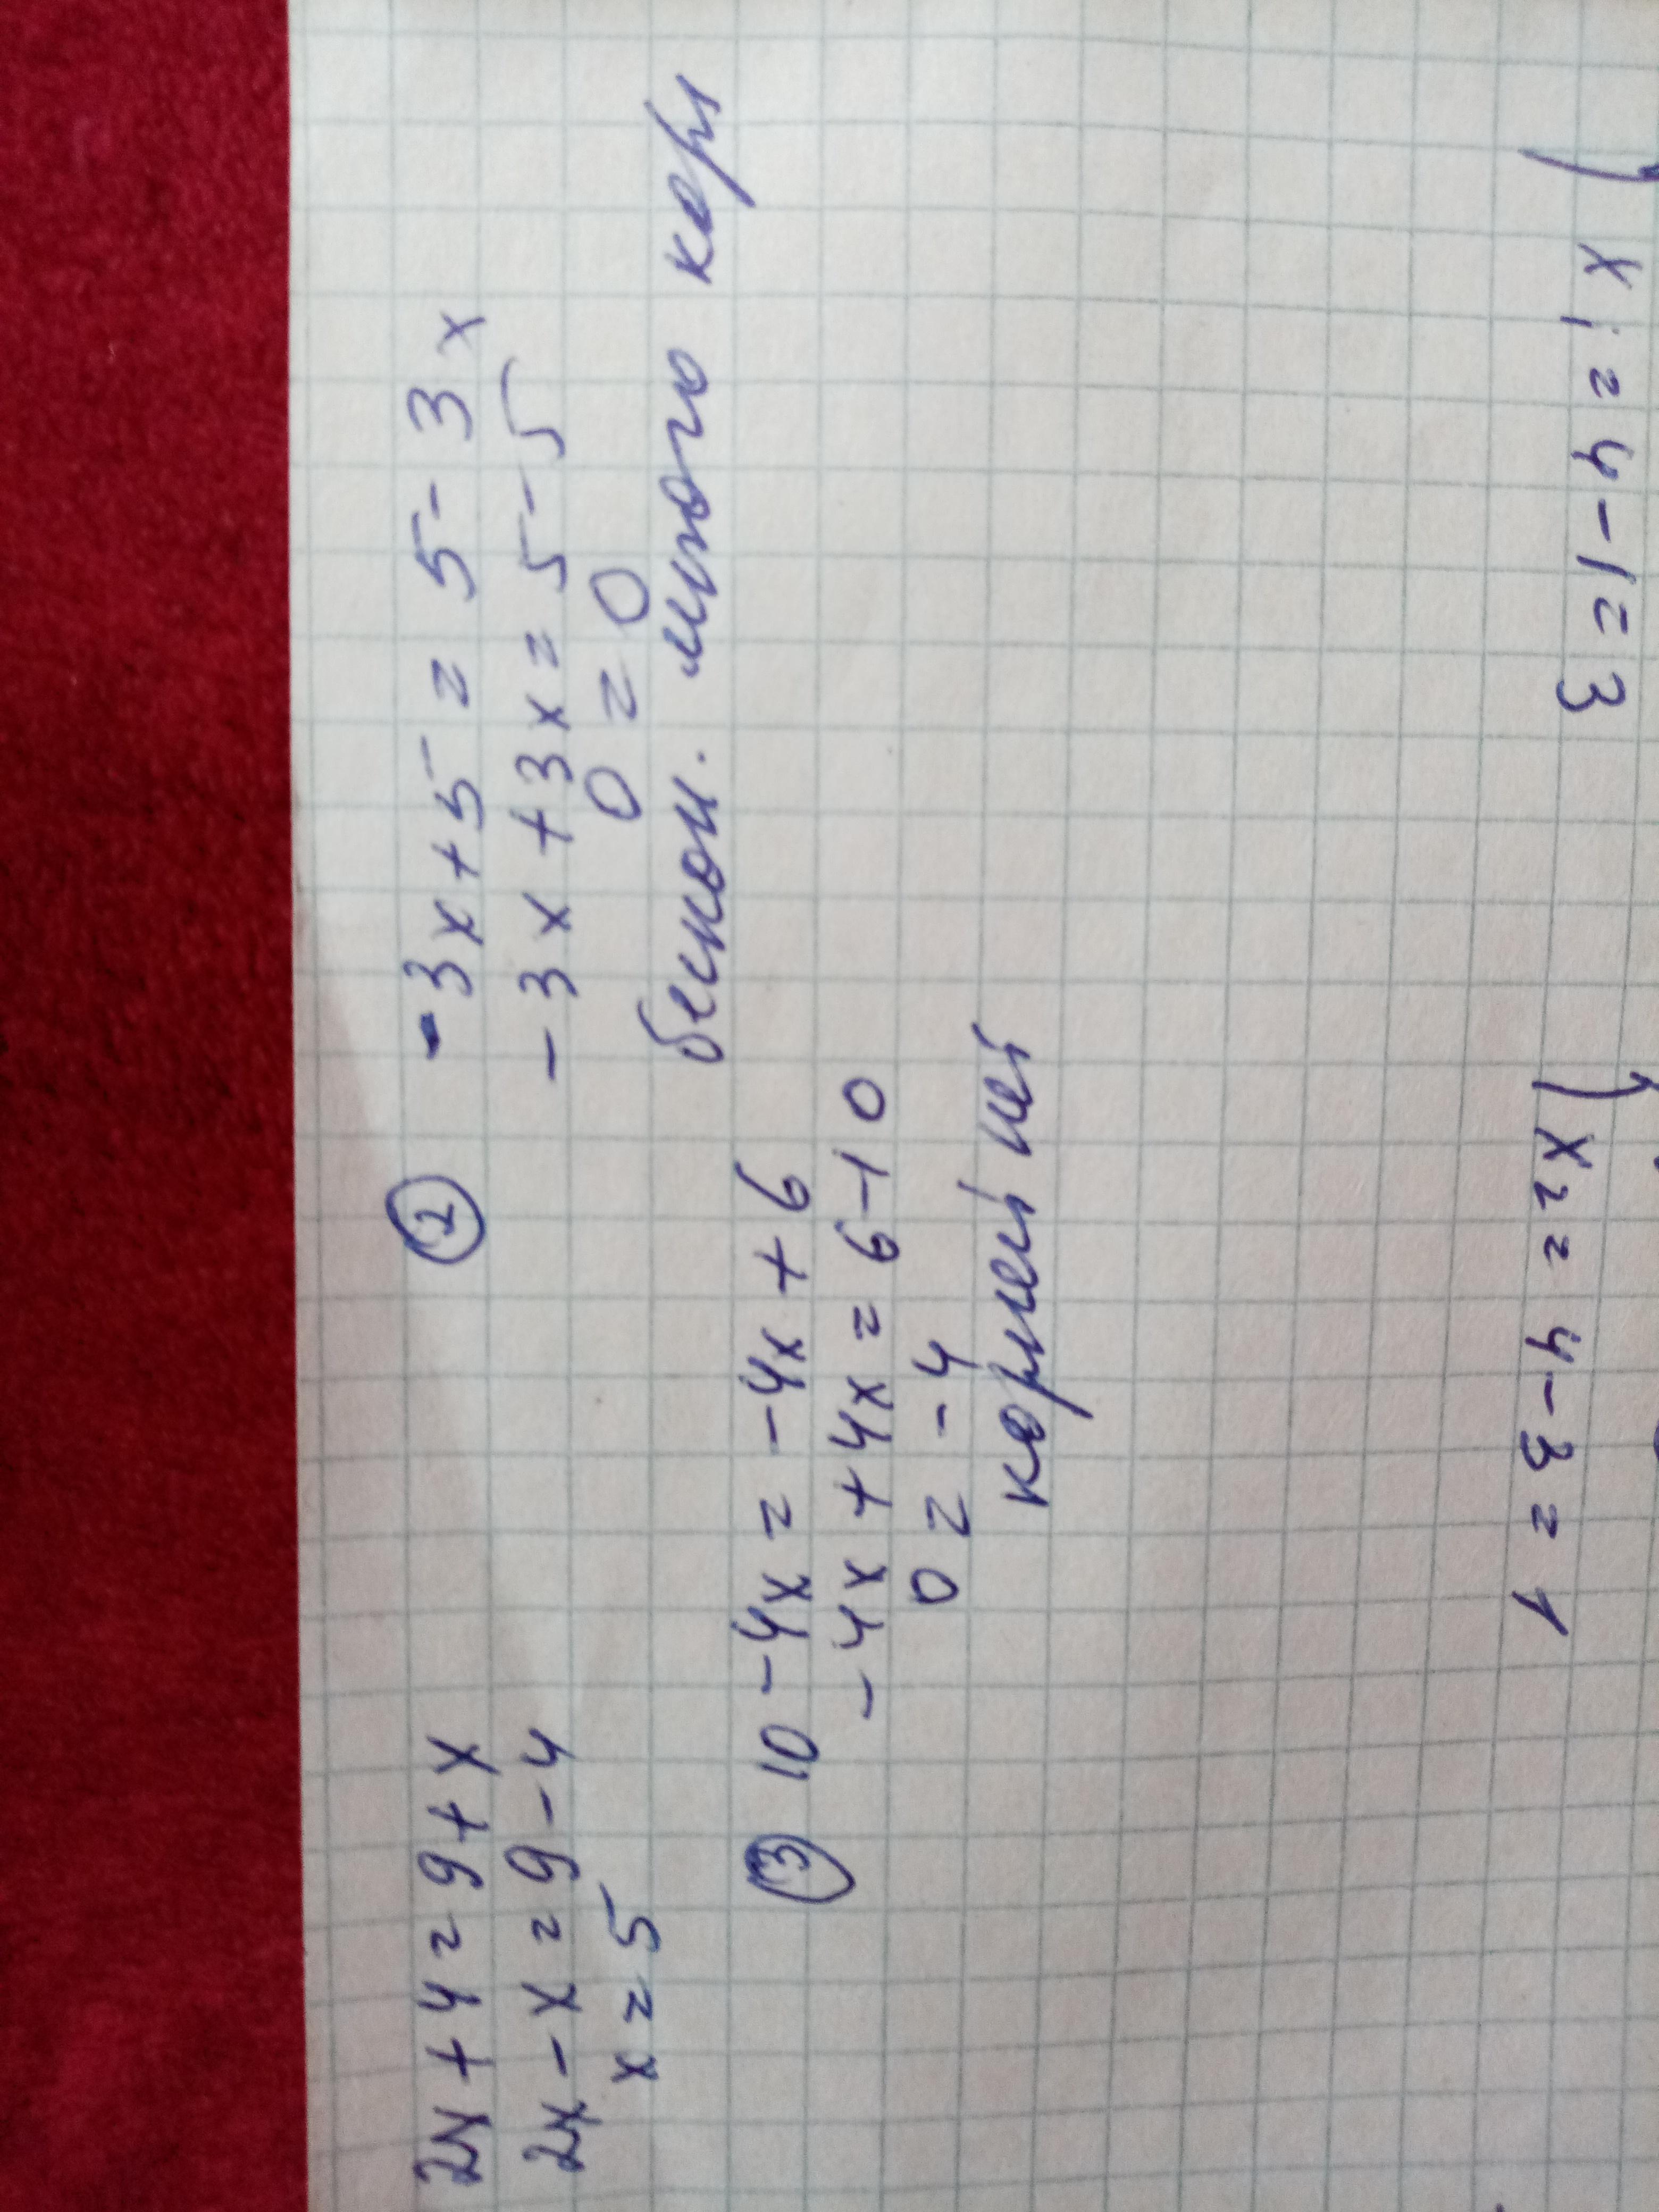 2x + 4 = 9 + x
2x - x = 9 - 4
x = 5
② -3x + 5 = 5 - 3x
-3x + 3x = 5 - 5
0 = 0
бескон. много корн
③ 10 - 4x = -4x + 6
-4x + 4x = 6 - 10
0 = -4
корней нет
x₁ = 4 - 1 = 3
x₂ = 4 - 3 = 1